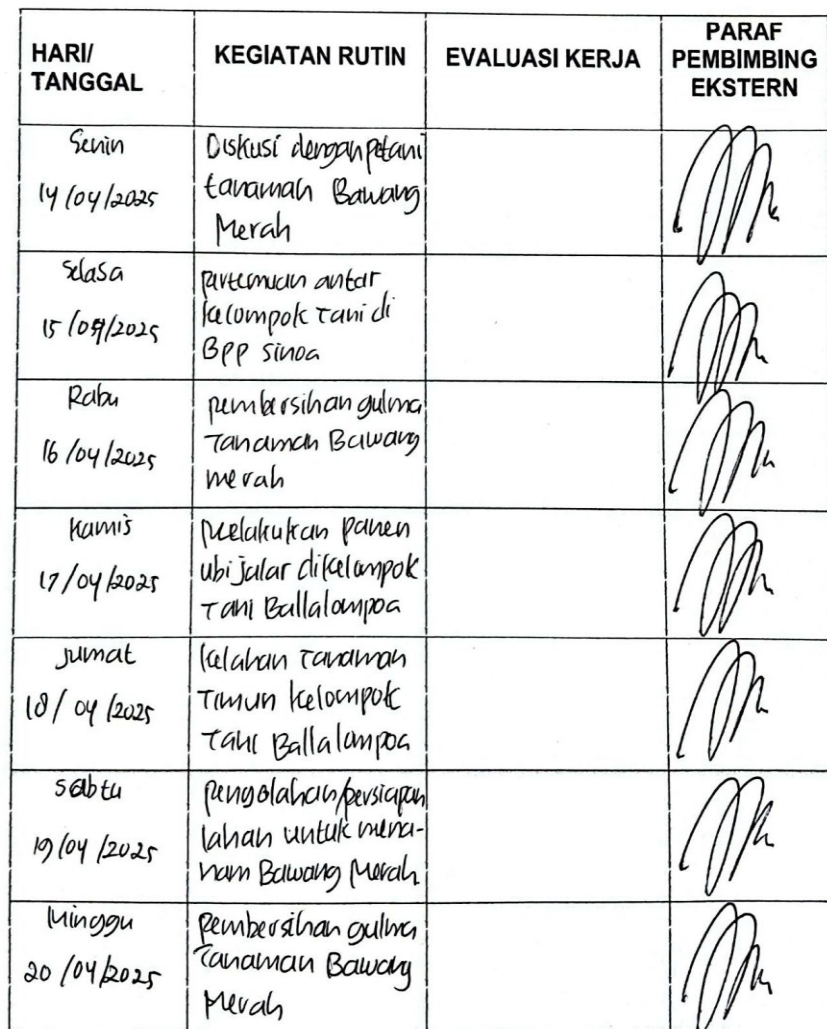 HARI/
TANGGAL
KEGIATAN RUTIN
EVALUASI KERJA
PARAF
PEMBIMBING
EKSTERN
Senin
14/04/2025
Diskusi dengan petani
tanaman Bawang
Merah
Selasa
15/04/2025
pertemuan antar
kelompok Tani di
BPP sinoa
Rabu
16/04/2025
pembersihan gulma
Tanaman Bawang
merah
Kamis
17/04/2025
Melakukan panen
ubi jalar dikelompok
Tani Ballalompoa
Jumat
18/04/2025
kelahan Tanaman
Timun kelompok
Tani Ballalompoa
Sabtu
19/04/2025
pengolahan/persiapan
lahan untuk mena-
nam Bawang Merah
Minggu
20/04/2025
pembersihan gulma
Tanaman Bawang
Merah